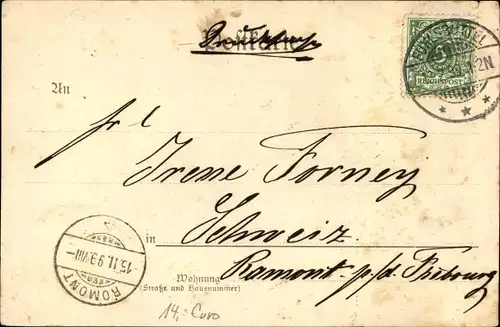 Postkarte
Drucksache
REICHSPOST
An
frl.
Irene Forney
in Schweiz
Wohnung
(Straße und Hausnummer)
Romont p/d. Fribourg
ROMONT
15.II.99.VIII
14,- Euro